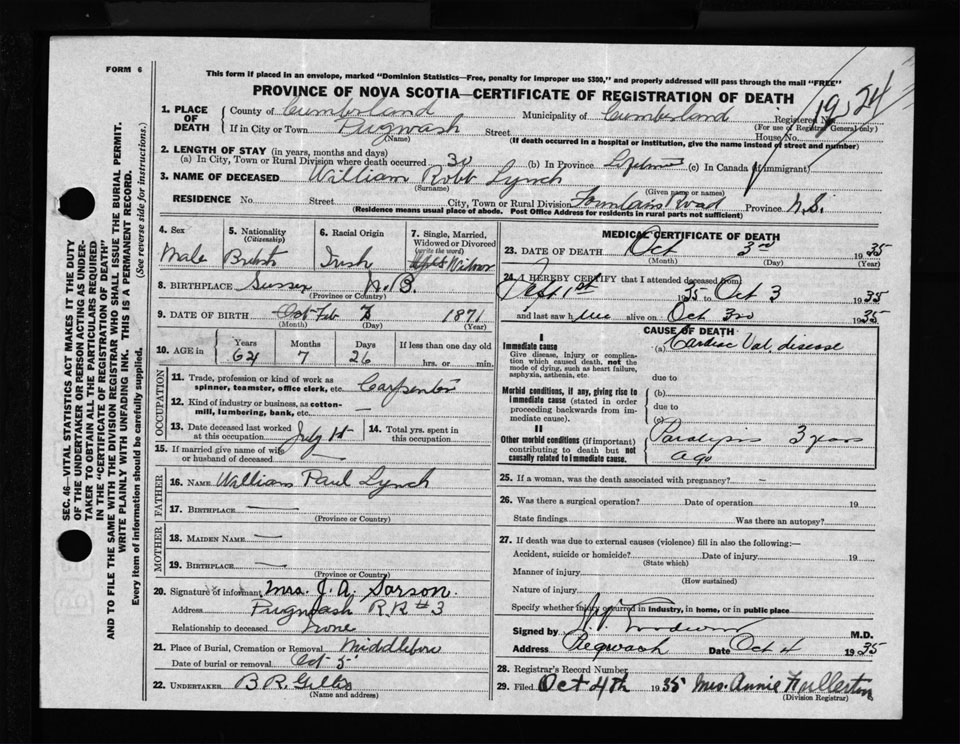 FORM 6
This form if placed in an envelope, marked "Dominion Statistics—Free, penalty for improper use $300," and properly addressed will pass through the mail "FREE"
PROVINCE OF NOVA SCOTIA—CERTIFICATE OF REGISTRATION OF DEATH
1924
1. PLACE OF DEATH
County of Cumberland Municipality of Cumberland Registered No.
(For use of Registrar General only)
If in City or Town Pugwash Street House No.
(Name)
(If death occurred in a hospital or institution, give the name instead of street and number)
2. LENGTH OF STAY (in years, months and days)
(a) In City, Town or Rural Division where death occurred 30 (b) In Province Lifetime (c) In Canada (if immigrant)
3. NAME OF DECEASED William Robb Lynch
(Surname) (Given name or names)
RESIDENCE No. Street City, Town or Rural Division Fountain Road Province N.S.
(Residence means usual place of abode. Post Office Address for residents in rural parts not sufficient)
4. Sex
Male
5. Nationality
(Citizenship)
British
6. Racial Origin
Irish
7. Single, Married, Widowed or Divorced
(write the word)
Widower
8. BIRTHPLACE Sussex N.B.
(Province or Country)
9. DATE OF BIRTH Oct Feb 7 1871
(Month) (Day) (Year)
10. AGE in
Years Months Days If less than one day old
64 7 26 hrs. or min.
OCCUPATION
11. Trade, profession or kind of work as spinner, teamster, office clerk, etc. Carpenter
12. Kind of industry or business, as cotton-mill, lumbering, bank, etc. —
13. Date deceased last worked at this occupation July 1st
14. Total yrs. spent in this occupation
15. If married give name of wife or husband of deceased —
FATHER
16. NAME William Paul Lynch
17. BIRTHPLACE —
(Province or Country)
MOTHER
18. MAIDEN NAME —
19. BIRTHPLACE —
(Province or Country)
20. Signature of informant Mrs. J. A. Sarson
Address Pugwash R.R #3
Relationship to deceased None
21. Place of Burial, Cremation or Removal Middleboro
Date of burial or removal Oct 5
22. UNDERTAKER B R. Gillis
(Name and address)
MEDICAL CERTIFICATE OF DEATH
23. DATE OF DEATH Oct 3rd 1935
(Month) (Day) (Year)
24. I HEREBY CERTIFY that I attended deceased from
Sept 1st 1935 to Oct 3 1935
and last saw him alive on Oct 3rd 1935
CAUSE OF DEATH
I
Immediate cause
Give disease, injury or complication which caused death, not the mode of dying, such as heart failure, asphyxia, asthenia, etc.
(a) Cardiac Val. disease
due to
Morbid conditions, if any, giving rise to immediate cause (stated in order proceeding backwards from immediate cause).
(b)
due to
(c)
II
Other morbid conditions (if important) contributing to death but not causally related to immediate cause.
Paralysis 3 years
ago
25. If a woman, was the death associated with pregnancy? –
26. Was there a surgical operation? Date of operation 19
State findings Was there an autopsy?
27. If death was due to external causes (violence) fill in also the following:—
Accident, suicide or homicide? Date of injury 19
(State which)
Manner of injury
(How sustained)
Nature of injury
Specify whether injury occurred in industry, in home, or in public place
Signed by M.D.
Address Pugwash Date Oct 4 1935
28. Registrar's Record Number
29. Filed Oct 4th 1935 Mrs. Annie Fullerton
(Division Registrar)
SEC. 46—VITAL STATISTICS ACT MAKES IT THE DUTY
OF THE UNDERTAKER OR PERSON ACTING AS UNDER-
TAKER TO OBTAIN ALL THE PARTICULARS REQUIRED
IN THE "CERTIFICATE OF REGISTRATION OF DEATH"
AND TO FILE THE SAME WITH THE DIVISION REGISTRAR WHO SHALL ISSUE THE BURIAL PERMIT.
WRITE PLAINLY WITH UNFADING INK. THIS IS A PERMANENT RECORD.
Every item of information should be carefully supplied. (See reverse side for instructions.)